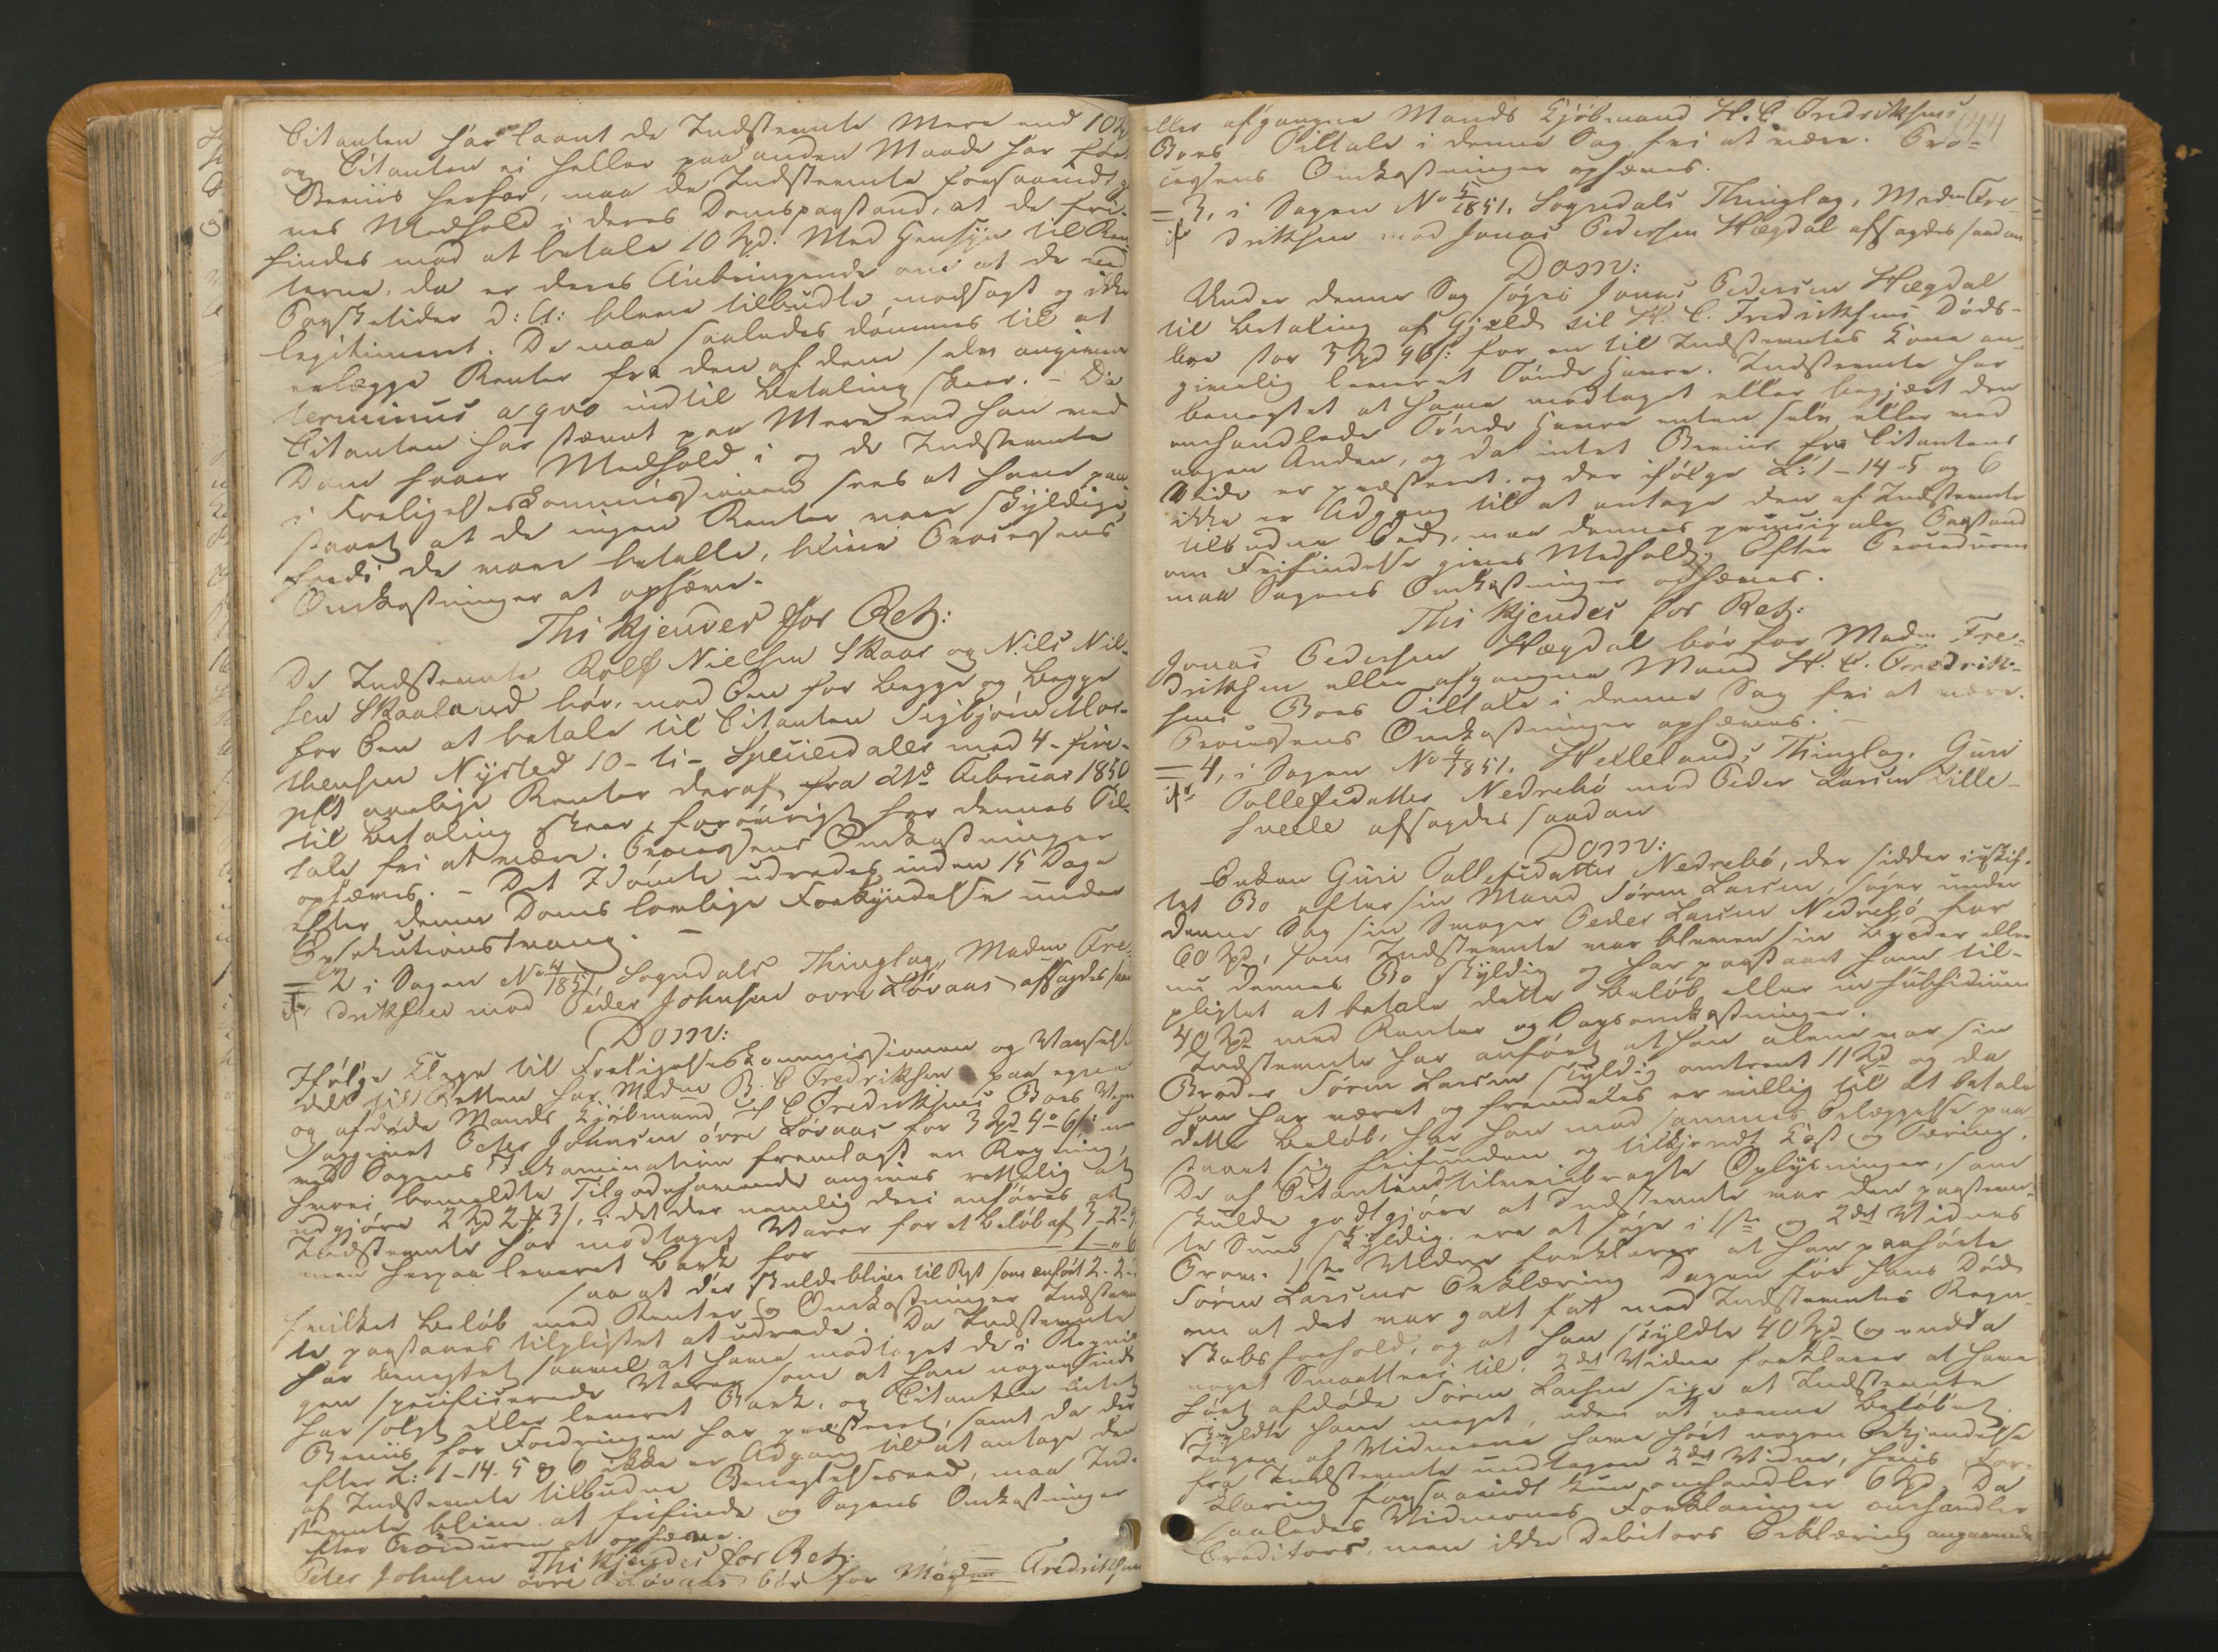 Citanten har laant de Indstevnte Mere end 10 Spd
og Citanten ei heller paa anden Maade har ført
Beviis herfor, maa de Indstevnte forsaavidt gi-
ves Medhold i deres Domspaastand, at de fri-
findes mod at betale 10 Spd. Med Hensyn til Ren-
terne, da er deres Anbringende om at de ved
Paasketider d: A: bleve tilbudte modsagt og ikke
legitimeret. De maa saaledes dømmes til at
erlægge Renter fra den af dem selv angivne
terminus a qvo indtil Betaling skeer. – Da
Citanten har stævnt paa Mere end han ved
Dom faaer Medhold i og de Indstevnte
i Forligelseskommissionen sees at have paa-
staaet at de ingen Renter vare skyldige,
fordi de vare betalte, blive Processens
Omkostninger at ophæve.
Thi kjendes for Ret:
De Indstevnte Rolf Nielsen Skaar og Nils Nil-
sen Skaaland bør, mod Een for Begge og Begge
for Een at betale til Citanten Sigbjørn Mor-
thensen Nysted 10 – ti – Speciedaler med 4 – fire –
pCt aarlige Renter deraf fra 21de Februar 1850
til Betaling skeer, forøvrigt for dennes Til-
tale fri at være. Processens Omkostninger
ophæves. – Det Idømte udredes inden 15 Dage
efter denne Doms lovlige Forkyndelse under
Exekutionstvang. –
= 2 i Sagen No 4/1851, Sogndals Thinglag, Madm Fre-
driksen mod Peder Johnsen øvre Løvaas afsagdes saadan
Dom:
Ifølge Klage til Forligelseskommissionen og Varsels
deel til Retten har Madm B. C Fredriksen paa egne
og afdøde Mands Kjøbmand H C Fredriksens Boes Vegne
sagsøgt Peter Johnsen øvre Løvaas for 3 Spd 4 6 s:
ved Sagens Inkamination fremlagt en Regning,
hvori bemeldte Tilgodehavende angives rettelig at
udgjøre 2 Spd 2 3 s, i det der nemlig deri anføres at
Indstevnte har modtaget Varer for et Beløb af 3-2-9
men herpaa leveret Bark for 1 – „ 6
saa at der skulde blive til Rest som anført 2-2-3
hvilket Beløb med Renter og Omkostninger Indstevn-
te paastaaes tilpligtet at udrede. Da Indstevnte
har benegtet saavel at have modtaget de i Regnin-
gen specificerede Varer som at han nogensinde
har solgt eller leveret Bark, og Citanten intet
Beviis for Fordringen har præsteret, samt da der
efter L: 1-14. 5 og 6 ikke er Adgang til at antage den
af Indstevnte tilbudne Benegtelseseed, maa Ind-
stevnte blive at frifinde og Sagens Omkostninger
efter Proceduren at ophæve.
Thi kjendes for Ret:
Peter Johnsen øvre Løvaas bør for Madm Fredriksens
eller afgangne Mands Kjøbmand H. C Fredriksens 144
Boes Tiltale i denne Sag fri at være. Pro-
cessens Omkostninger ophæves.
= 3, i Sagen No 5/1851. Sogndals Thinglag, Madm Fre-
driksen mod Jonas Pedersen Hægdal afsagdes saadan
Dom:
Under denne Sag søges Jonas Pedersen Hægdal
til Betaling af Gjæld til H. C. Fredriksens Døds-
boe stor 3 Spd 96 s: for en til Indstevntes Kone an-
givelig leveret Tønde Havre. Indstevnte har
benegtet at have modtaget eller begjært den
omhandlede Tønde Havre enten selv eller ved
nogen Anden, og da intet Beviis fra Citantens
Side er præsteret, og der ifølge L: 1-14-5 og 6
ikke er Adgang til at antage den af Indstevnte
tilbudne Eed, maa dennes principale Paastand
om Frifindelse gives Medhold. Efter Proceduren
maa Sagens Omkostninger ophæves.
Thi kjendes for Ret:
Jonas Pedersen Hægdal bør for Madm Fre-
driksen eller afgangne Mand H. C. Fredrik-
sens Boes Tiltale i denne Sag fri at være.
Processens Omkostninger ophæves. –
= 4, i Sagen No 4/1851. Hellelands Thinglag. Guri
Tollefsdatter Nedrebø mod Peder Larsen Lille-
hvelle afsagdes saadan
Dom:
Enken Guri Tollefsdatter Nedrebø, der sidder i uskif-
tet Bo efter sin Mand Søren Larsen, søger under
denne Sag sin Svoger Peder Larsen Nedrebø for
60 Spd, som Indstevnte var bleven sin Broder eller
nu dennes Bo skyldig og har paastaaet ham til-
pligtet at betale dette Beløb eller in subsidium
40 Spd med Renter og Sagsomkostninger.
Indstevnte har anført at han alene var sin
Broder Søren Larsen skyldig omtrent 11 Spd og da
han har været og fremdeles er villig til at betale
dette Beløb, har han mod sammes Erlæggelse paa-
staaet sig frifunden og tilkjendt Kost og Tæring.
De af Citantinden tilveiebragte Oplysninger, som
skulde godtgjøre at Indstevnte var den paastevn-
te Sum skyldig, ere at søge i 1ste og 2det Vidnes
Prov. 1ste Vidne forklarer at han paahørte
Søren Larsens Erklæring Dagen før hans Død
om at det var galt fat med Indstevntes Regn-
skabsforhold, og at han skyldte 40 Spd og endda
noget Smaatteri til. 2det Vidne forklarer at have
hørt afdøde Søren Larsen sige at Indstevnte
skyldte ham meget, uden at nævne Beløbet.
Ingen af Vidnerne have hørt nogen Erkjendelse
fra Indstevnte undtagen 2det Vidne, hvis For-
klaring forsaavidt kun omhandler 6 Spd. Da
saaledes Vidnernes Forklaringer omhandler
Creditors, men ikke Debitors Erklæring angaaende